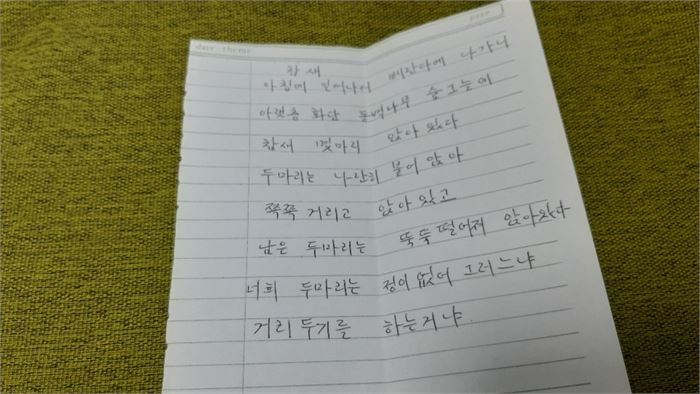 date . theme
page
참새
아침에 일어나서 베란다에 나가니
아랫층 화단 동백나무 숲그늘에
참새 몇마리 앉아 있다
두마리는 나란히 붙어 앉아
쪽쪽 거리고 앉아 있고
남은 두마리는 뚝뚝 떨어져 앉아있다
너희 두마리는 정이 없어 그러느냐
거리 두기를 하는거냐